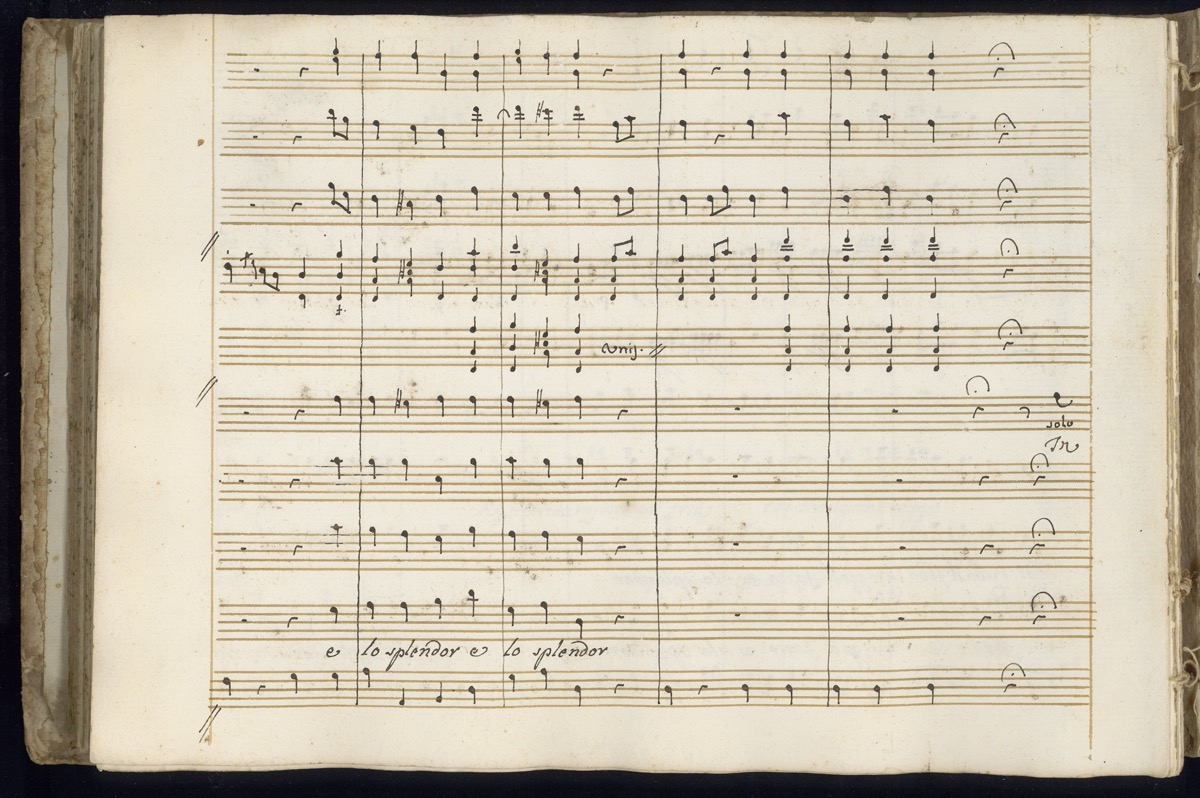 f.
unis.
solo
In
e lo splendor e lo splendor